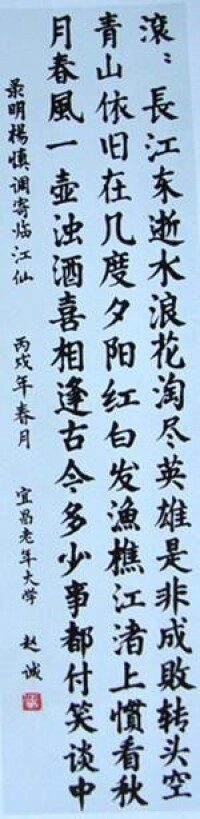 滚〻長江东逝水浪花淘尽英雄是非成敗转头空
青山依旧在几度夕阳红白发漁樵江渚上慣看秋
月春風一壶浊酒喜相逢古今多少事都付笑谈中
录明楊慎调寄临江仙 丙戌年春月 宜昌老年大学 赵诚